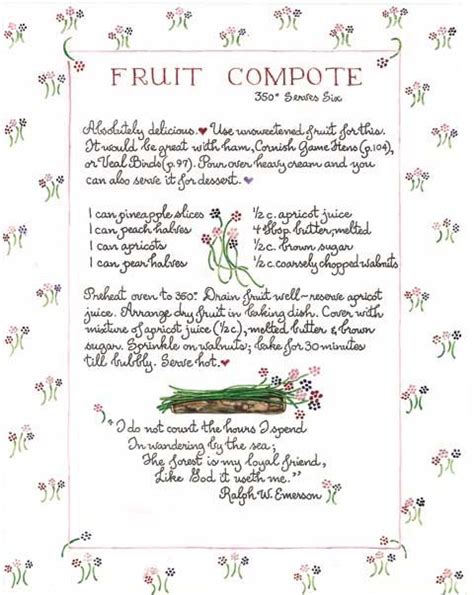 FRUIT COMPOTE
350° Serves Six
Absolutely delicious. ♥ Use unsweetened fruit for this.
It would be great with ham, Cornish Game Hens (p.104),
or Veal Birds (p.97). Pour over heavy cream and you
can also serve it for dessert. ♥
1 can pineapple slices
1 can peach halves
1 can apricots
1 can pear halves
1/2 c. apricot juice
4 Tbsp. butter, melted
1/2 c. brown sugar
1/2 c. coarsely chopped walnuts
Preheat oven to 350°. Drain fruit well~reserve apricot
juice. Arrange dry fruit in baking dish. Cover with
mixture of apricot juice (1/2 c.), melted butter & brown
sugar. Sprinkle on walnuts; bake for 30 minutes
till bubbly. Serve hot. ♥
"I do not count the hours I spend
In wandering by the sea;
The forest is my loyal friend,
Like God it useth me."
Ralph W. Emerson